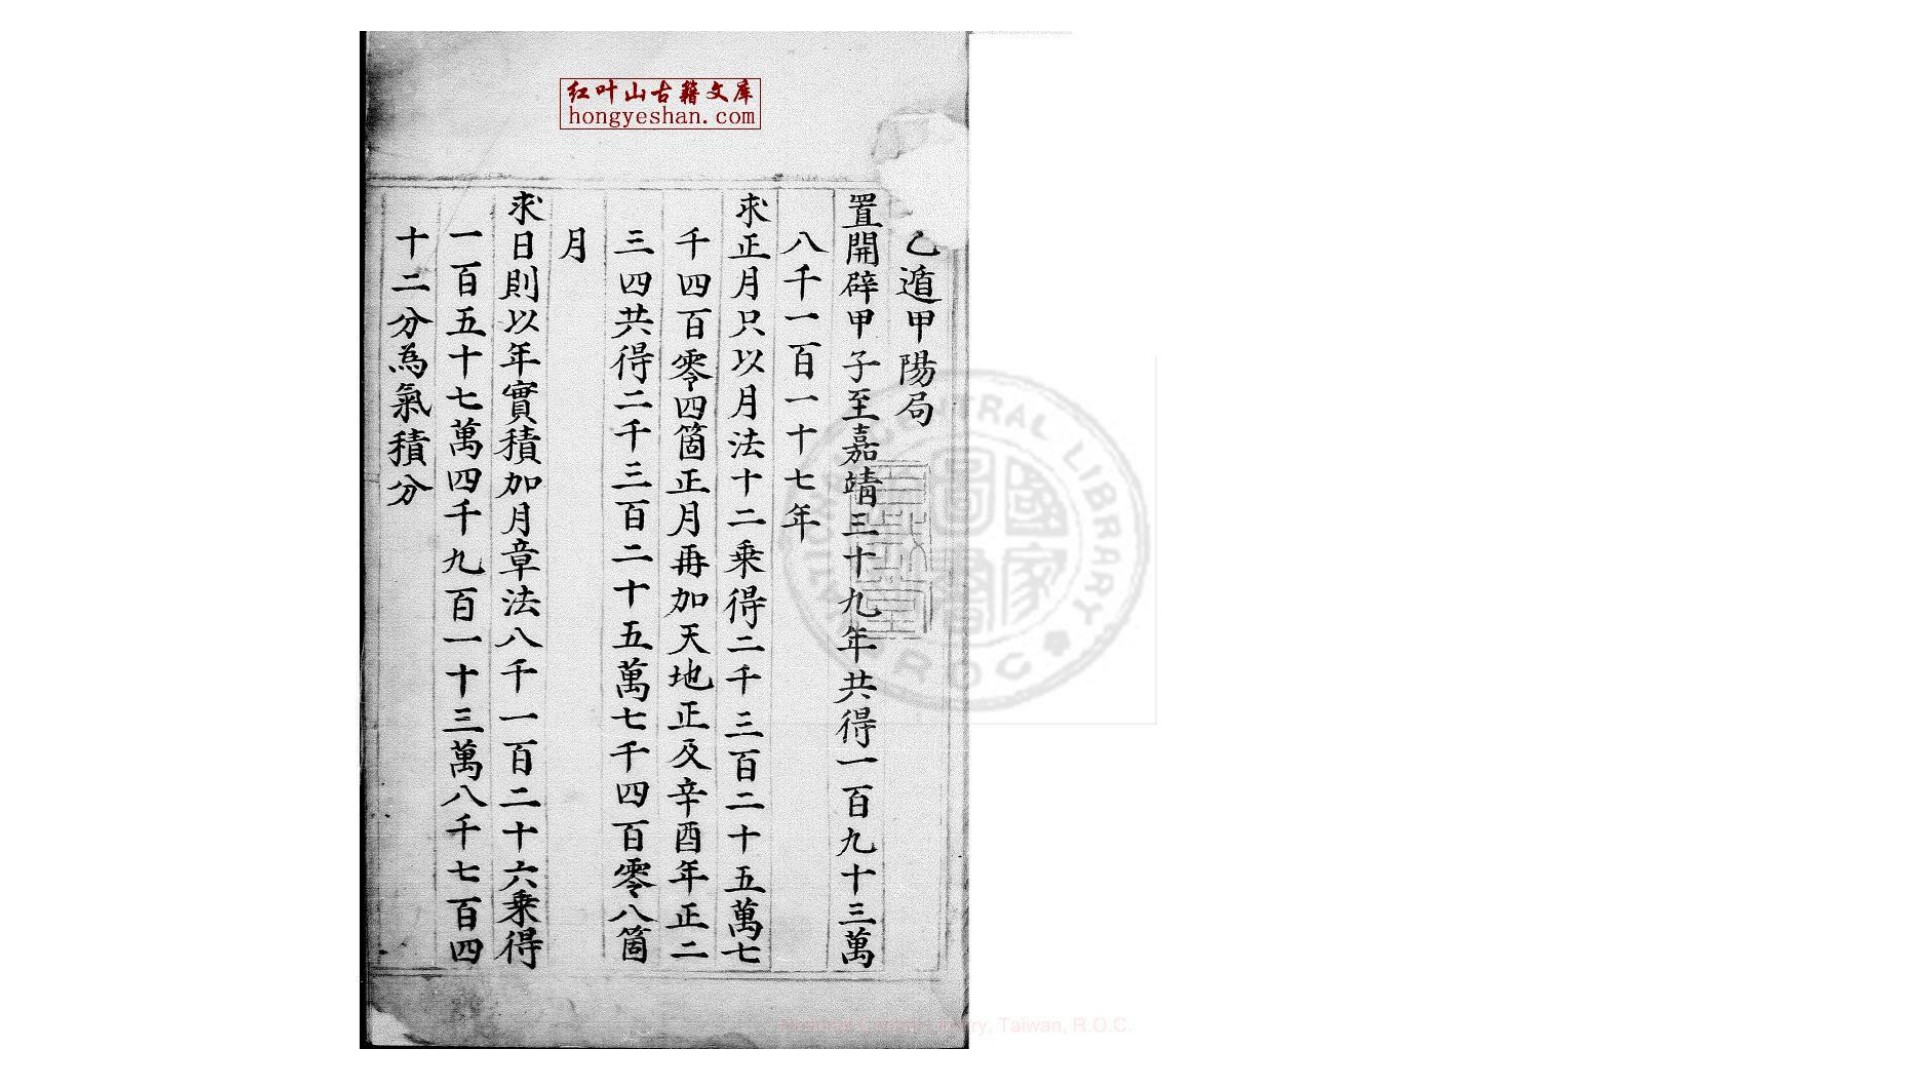 红叶山古籍文库
hongyeshan.com
乙遁甲陽局
置開辟甲子至嘉靖三十九年共得一百九十三萬
八千一百一十七年
求正月只以月法十二乗得二千三百二十五萬七
千四百零四箇正月再加天地正及辛酉年正二
三四共得二千三百二十五萬七千四百零八箇
月
求日則以年實積加月章法八千一百二十六乗得
一百五十七萬四千九百一十三萬八千七百四
十二分為氣積分
國家圖書
CENTRAL LIBRARY
Taiwan, R.O.C.